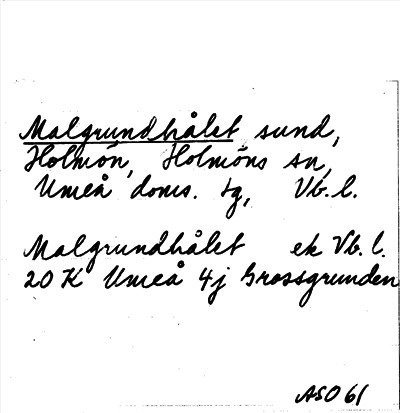 Malgrundhålet sund,
Holmön, Holmöns sn,
Umeå doms. tg, Vb. l.
Malgrundhålet ek Vb. l.
20 K Umeå 4j Grossgrunden
ASO 61